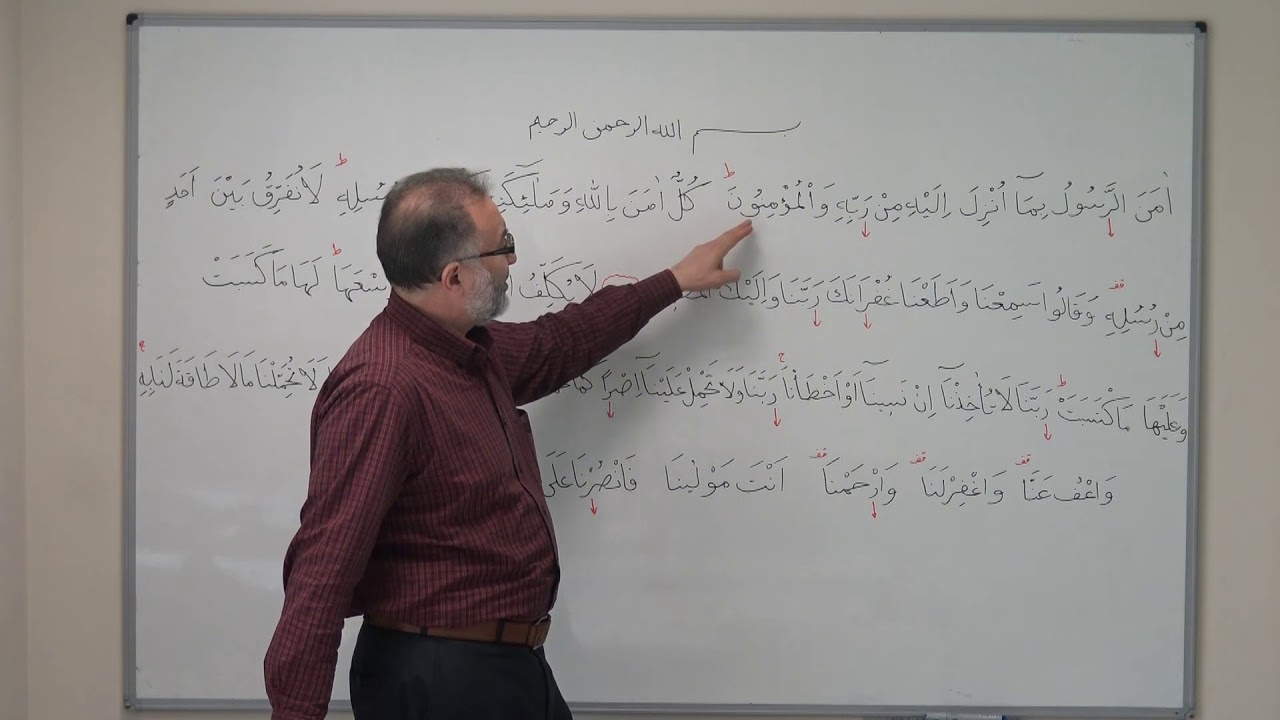 بسم الله الرحمن الرحيم
اٰمَنَ الرَّسُولُ بِمَٓا اُنْزِلَ اِلَيْهِ مِنْ رَبِّهِ وَالْمُؤْمِنُونَ ط كُلٌّ اٰمَنَ بِاللّٰهِ وَمَلٰٓئِكَتِهِ لَا نُفَرِّقُ بَيْنَ اَحَدٍ
مِنْ رُسُلِهِ قف وَقَالُوا سَمِعْنَا وَاَطَعْنَا غُفْرَانَكَ رَبَّنَا وَاِلَيْكَ لَا يُكَلِّفُ لَهَا مَا كَسَبَتْ
وَعَلَيْهَا مَا كْتَسَبَتْ ط رَبَّنَا لَا تُؤَاخِذْنَٓا اِنْ نَسِينَٓا اَوْ اَخْطَاْنَا ج رَبَّنَا وَلَا تَحْمِلْ عَلَيْنَٓا اِصْرًا لَا تُحَمِّلْنَا مَا لَا طَاقَةَ لَنَا بِهِ ج
وَاعْفُ عَنَّا قف وَاغْفِرْ لَنَا قف وَارْحَمْنَا قف اَنْتَ مَوْلٰينَا فَانْصُرْنَا عَلَى